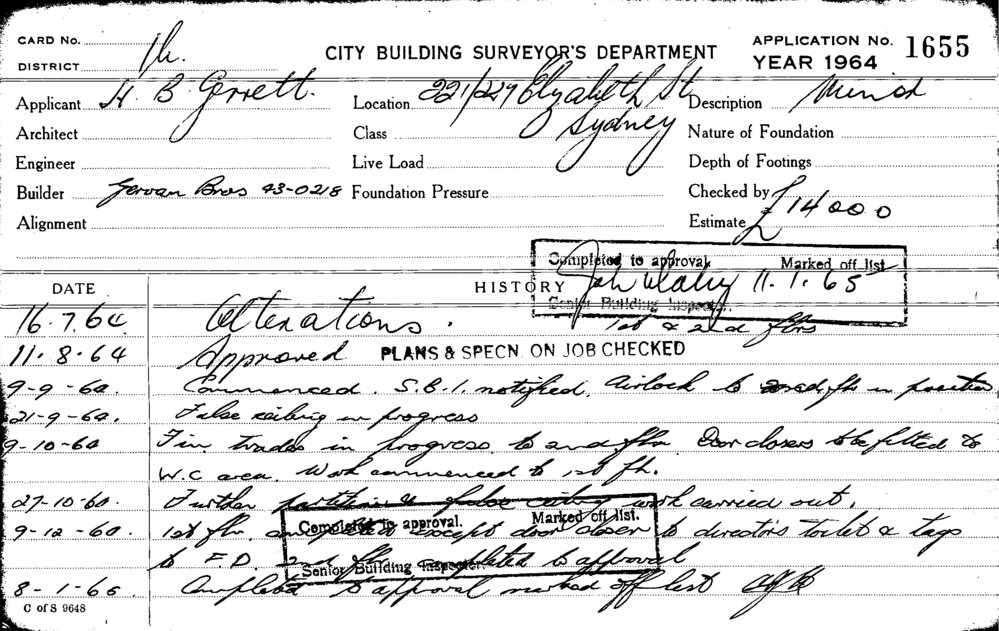 CARD No. CITY BUILDING SURVEYOR'S DEPARTMENT APPLICATION No. 1655
DISTRICT YEAR 1964
Applicant H. B. Gerrett. Location 221/227 Elizabeth St Description Minor
Architect Class Sydney Nature of Foundation
Engineer Live Load Depth of Footings
Builder Gervan Bros 43-0218 Foundation Pressure Checked by
Alignment Estimate £14000
Completed to approval Marked off list
11.1.65
Senior Building Inspector.
DATE HISTORY
16.7.64 Alterations. 1st & 2nd flrs
11.8.64 Approved PLANS & SPECN. ON JOB CHECKED
9-9-64 Commenced. S.B.I. notified. Airlock to 2nd flr in position
21-9-64. False ceiling in progress
9-10-64 Fin. trades in progress to 2nd flr Door closers to be fitted to
W.C area. Work commenced to 1st flr.
27-10-64. Further partitions & false ceiling work carried out.
9-12-64. 1st flr. completed except door closer to director's toilet & tags
to F.D. 2nd flr completed to approval
Completed to approval. Marked off list.
Senior Building Inspector
8-1-65 Completed to approval marked off list
C of S 9648